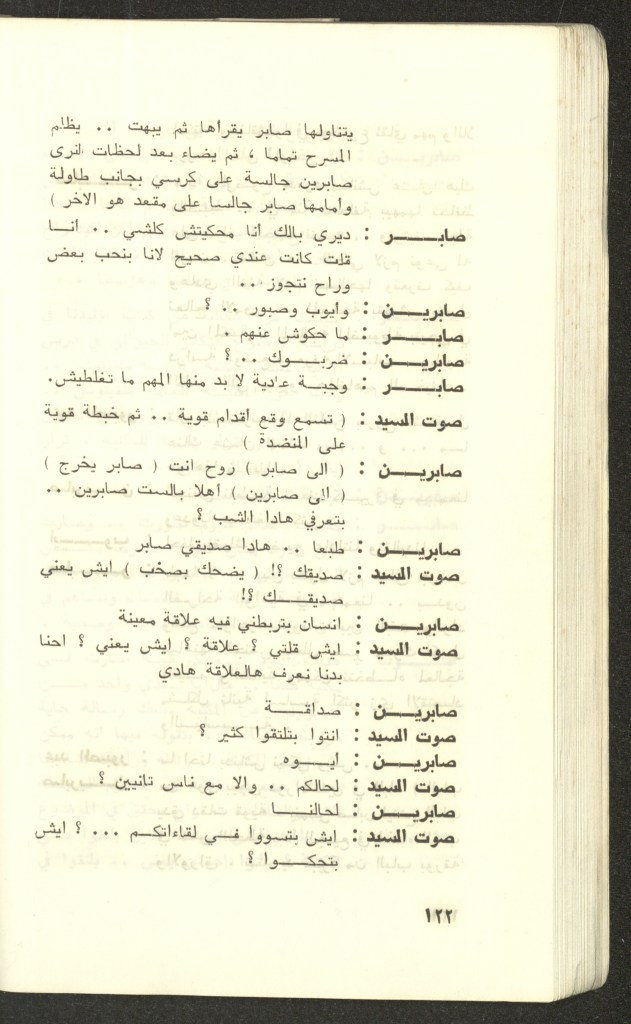 يتناولها صابر يقراها ثم يبهت .. يظلم
المسرح تماما ، ثم يضاء بعد لحظات لنرى
صابرين جالسة على كرسي بجانب طاولة
وامامها صابر جالسا على مقعد هو الآخر )
صابـــــر : ديري بالك انا محكيتش كلشي .. انــا
قلت كانت عندي صحيح لانا بنحب بعض
وراح نتجوز ..
صابريـــن : وايوب وصبور .. ؟
صابـــــر : ما حكوش عنهم .
صابريـــن : ضربـــوك .. ؟
صابـــــر : وجبـة عادية لا بد منها المهم ما تغلطيش.
صوت السيد : ( تسمع وقع أقدام قوية .. ثم خبطة قوية
على المنضدة )
صابريـــن : ( الى صابر ) روح انت ( صابر يخرج )
( الى صابرين ) أهلا بالست صابرين ..
بتعرفي هادا الشب ؟
صابريـــن : طبعا .. هادا صديقي صابر
صوت السيد : صديقك ؟! ( يضحك بصخب ) ايش يعني
صديقـــك ؟!
صابريـــن : انسان بتربطني فيه علاقة معينة
صوت السيد : ايش قلتي ؟ علاقة ؟ ايش يعني ؟ احنا
بدنا نعرف هالعلاقة هادي
صابريـــن : صداقـــة
صوت السيد : انتوا بتلتقوا كثير ؟
صابريـــن : أيـــوه
صوت السيد : لحالكم .. والا مع ناس تانيين ؟
صابريـــن : لحالنـــا
صوت السيد : ايش بتسووا فـــي لقاءاتكـــم ... ؟ ايش
بتحكـــوا ؟
١٢٢